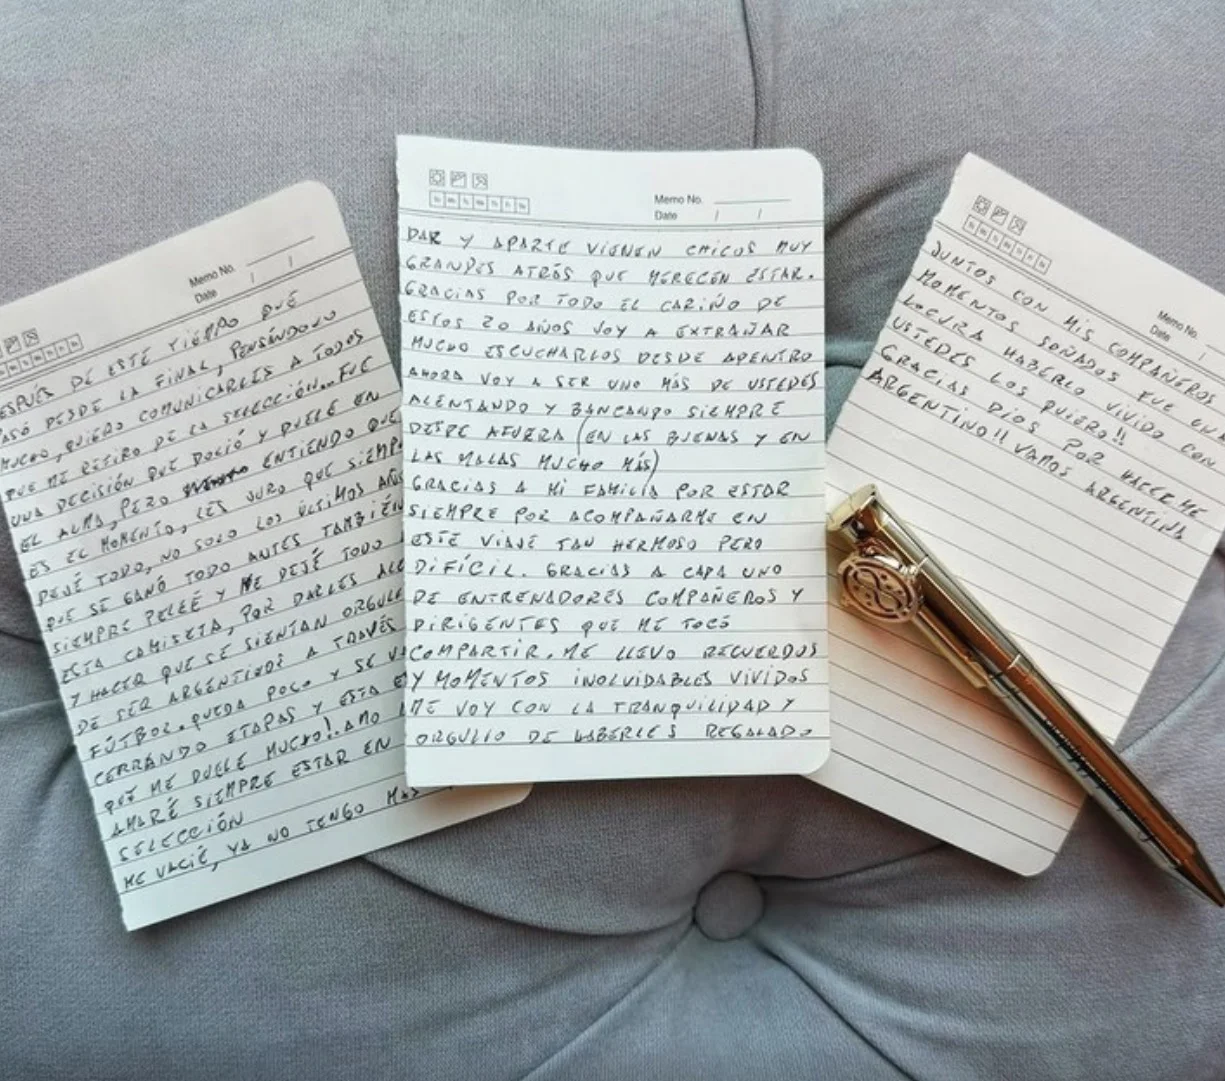 Memo No.
Date / /
ESPUÉS DE ESTE TIEMPO QUE
ASÓ DESDE LA FINAL, PENSÁNDOLO
MUCHO, QUIERO COMUNICARLES A TODOS
QUE ME RETIRO DE LA SELECCIÓN... FUE
UNA DECISIÓN QUE DOLIÓ Y DUELE EN
EL ALMA, PERO ENTIENDO QUE
ES EL MOMENTO, LES JURO QUE SIEMP
DEJÉ TODO, NO SOLO LOS ÚLTIMOS AÑOS
QUE SE GANÓ TODO ANTES TAMBIÉN
SIEMPRE PELEÉ Y ME DEJÉ TODO
ESTA CAMISETA, POR DARLES ALE
Y HACER QUE SE SIENTAN ORGULL
DE SER ARGENTINOS A TRAVÉS
FÚTBOL. QUEDA POCO Y SE VA
CERRANDO ETAPAS Y ESTA E
QUE ME DUELE MUCHO!. AMO
AMARÉ SIEMPRE ESTAR EN
SELECCIÓN
ME VACIÉ, YA NO TENGO MAS
Memo No.
Date / /
DAR Y APARTE VIENEN CHICOS MUY
GRANDES ATRÁS QUE MERECEN ESTAR.
GRACIAS POR TODO EL CARIÑO DE
ESTOS 20 AÑOS VOY A EXTRAÑAR
MUCHO ESCUCHARLOS DESDE ADENTRO
AHORA VOY A SER UNO MÁS DE USTEDES
ALENTANDO Y BANCANDO SIEMPRE
DESDE AFUERA (EN LAS BUENAS Y EN
LAS MALAS MUCHO MÁS)
GRACIAS A MI FAMILIA POR ESTAR
SIEMPRE POR ACOMPAÑARME EN
ESTE VIAJE TAN HERMOSO PERO
DIFÍCIL. GRACIAS A CADA UNO
DE ENTRENADORES COMPAÑEROS Y
DIRIGENTES QUE ME TOCÓ
COMPARTIR. ME LLEVO RECUERDOS
Y MOMENTOS INOLVIDABLES VIVIDOS
ME VOY CON LA TRANQUILIDAD Y
ORGULLO DE HABERLES REGALADO
Memo No.
Date /
JUNTOS CON MIS COMPAÑEROS
MOMENTOS SOÑADOS FUE UNA
LOCURA HABERLO VIVIDO CON
USTEDES LOS QUIERO!!
GRACIAS DIOS POR HACERME
ARGENTINO!! VAMOS ARGENTINA